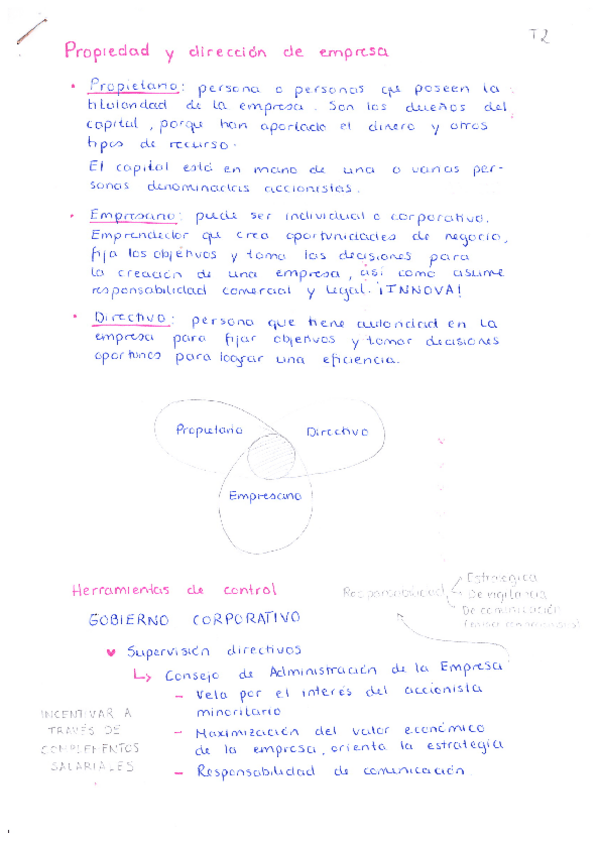 T2
Propiedad y dirección de empresa
• Propietario: persona o personas que poseen la
titularidad de la empresa. Son los dueños del
capital, porque han aportado el dinero y otros
tipos de recurso.
El capital está en mano de una o varias per-
sonas denominadas accionistas.
• Empresario: puede ser individual o corporativo.
Emprendedor que crea oportunidades de negocio,
fija los objetivos y toma las decisiones para
la creación de una empresa, así como asume
responsabilidad comercial y legal. ¡INNOVA!
• Directivo: persona que tiene autoridad en la
empresa para fijar objetivos y tomar decisiones
oportunas para lograr una eficiencia.
Propietario
Directivo
Empresario
Herramientas de control
Responsabilidad
Estrategica
De vigilancia
De comunicación
GOBIERNO CORPORATIVO
Supervisión directivos
Consejo de Administración de la Empresa
- Vela por el interés del accionista
minoritario
- Maximización del valor económico
de la empresa, orienta la estrategia
- Responsabilidad de comunicación
INCENTIVAR A
TRAVÉS DE
COMPLEMENTOS
SALARIALES